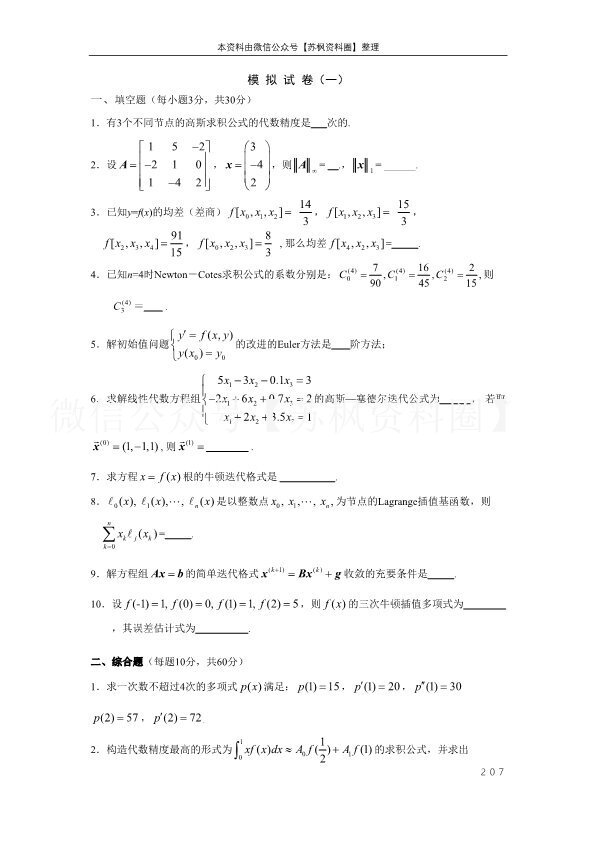 本资料由微信公众号【苏枫资料圈】整理
模 拟 试 卷（一）
一、填空题（每小题3分，共30分）
1．有3个不同节点的高斯求积公式的代数精度是____次的.
2．设 A = [1 5 −2; −2 1 0; 1 −4 2]，x = (3; −4; 2)，则‖A‖∞ = __.，‖x‖1 = ______.
3．已知y=f(x)的均差（差商）f[x0, x1, x2] = 14/3，f[x1, x2, x3] = 15/3，
f[x2, x3, x4] = 91/15，f[x0, x2, x3] = 8/3，那么均差 f[x4, x2, x3]=_____.
4．已知n=4时Newton－Cotes求积公式的系数分别是：C0^(4) = 7/90, C1^(4) = 16/45, C2^(4) = 2/15, 则
C3^(4) = ____ .
5．解初始值问题 { y′ = f(x, y); y(x0) = y0 的改进的Euler方法是____阶方法；
6．求解线性代数方程组 { 5x1 − 3x2 − 0.1x3 = 3; −2x1 + 6x2 + 0.7x3 = 2; x1 + 2x2 + 3.5x3 = 1 的高斯—塞德尔迭代公式为______，若取
x^(0) = (1, −1, 1)，则 x^(1) = ________ .
7．求方程 x = f(x) 根的牛顿迭代格式是__________.
8．ℓ0(x), ℓ1(x), ⋯, ℓn(x) 是以整数点 x0, x1, ⋯, xn, 为节点的Lagrange插值基函数，则
∑_{k=0}^{n} xk ℓj(xk) =_____.
9．解方程组 Ax = b 的简单迭代格式 x^(k+1) = Bx^(k) + g 收敛的充要条件是_____.
10．设 f(-1) = 1, f(0) = 0, f(1) = 1, f(2) = 5，则 f(x) 的三次牛顿插值多项式为________
，其误差估计式为__________.
二、综合题（每题10分，共60分）
1．求一次数不超过4次的多项式 p(x) 满足：p(1) = 15，p′(1) = 20，p″(1) = 30
p(2) = 57，p′(2) = 72
2．构造代数精度最高的形式为 ∫_0^1 xf(x)dx ≈ A0 f(1/2) + A1 f(1) 的求积公式，并求出
207
微信公众号【苏枫资料圈】